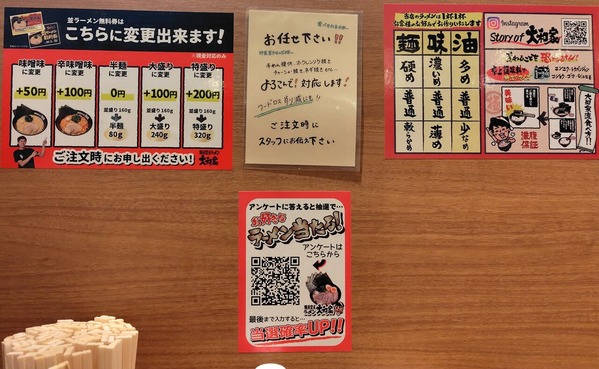 並ラーメン無料券は
こちらに変更出来ます!
※現金対応のみ
味噌味に変更
+50円
辛味噌味に変更
+100円
半麺に変更
0円
並盛り160g
半麺80g
大盛りに変更
+100円
並盛り160g
大盛り240g
特盛りに変更
+200円
並盛り160g
特盛り320g
ご注文時にお申し出ください!
大和家
お任せ下さい!!
よろこんで!対応します!
フードロス削減にも!
ご注文時に
スタッフにお伝え下さい
当店のラーメンは1杯1杯
麺 味 油
硬め 濃いめ 多め
普通 普通 普通
軟らかめ 薄め 少なめ
Instagram
Story of 大和家
美味
満腹保証
大和家流食べ方!!
アンケートに答えると抽選で…
お好きな
ラーメン当たる!
アンケートは
こちらから
ラーメン大和家
最後まで入力すると…
当選確率UP!!